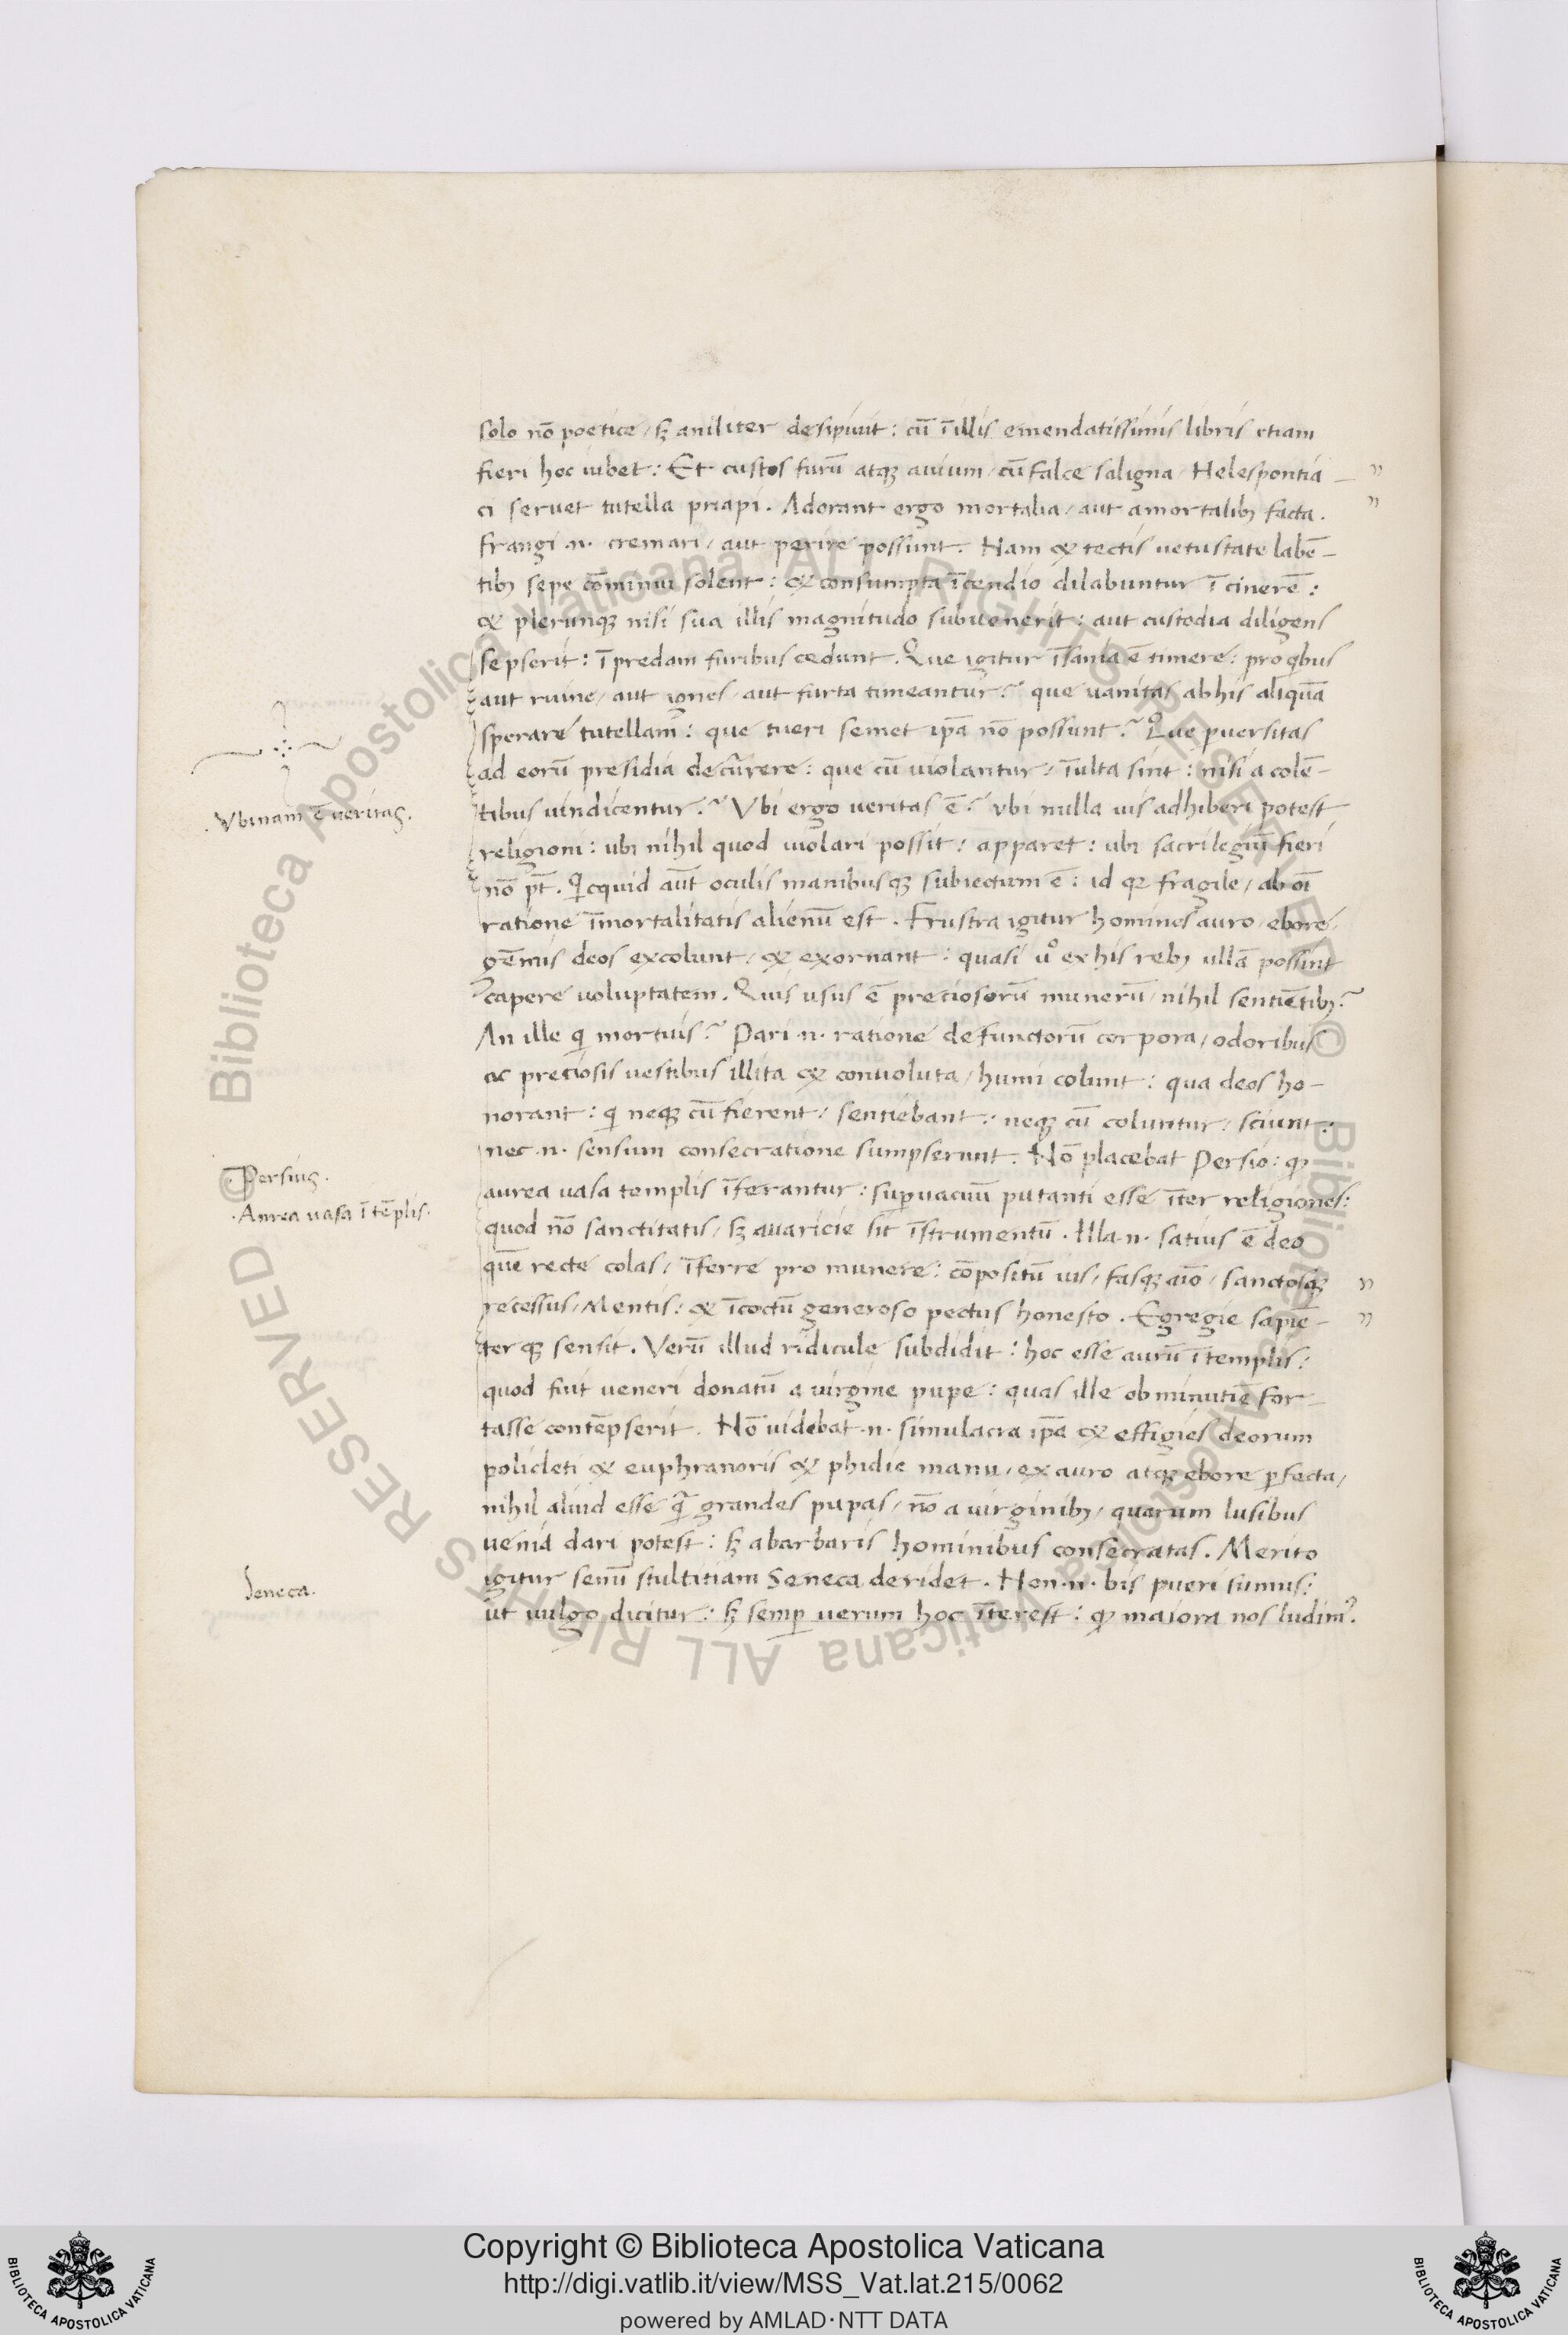 solo nō poetice / sꝫ aniliter desipiuit : cū ī illis emendatissimis libris etiam
fieri hoc iubet : Et custos furū atqꝫ auium / cū falce saligna / Helespontia - ”
ci seruet tutella priapi . Adorant ergo mortalia / aut a mortalibꝫ facta . ”
frangi .n. cremari / aut perire possunt . Nam & tectis uetustate labē -
tibꝫ sepe cōminui solent : & consumpta īcendio dilabuntur ī cinerē :
& plerunqꝫ nisi sua illis magnitudo subuenerit : aut custodia diligens
sepserit : ī predam furibus cedunt . Que igitur īsania ē timere : pro qbus
aut ruine / aut ignes / aut furta timeantur ? que uanitas ab his aliquā
sperare tutellam : que tueri semet ipā nō possunt ? Que puersitas
ad eorū presidia decūrere : que cū uiolantur / īulta sint : nisi a colē -
. Vbinam ē ueritas .
tibus uindicentur ? Vbi ergo ueritas ē ? vbi nulla uis adhiberi potest
religioni : ubi nihil quod uiolari possit / apparet : ubi sacrilegiū fieri
nō pt̄ . Qicquid aūt oculis manibusqꝫ subiectum ē : id qꝛ fragile / ab oī
ratione īmortalitatis alienū est . Frustra igitur homines auro / ebore /
gēmis deos excolunt / & exornant : quasi uº ex his rebꝫ ullā possint
capere uoluptatem . Quis usus ē preciosorū munerū / nihil sentiētibꝫ ?
An ille qi mortuis ? Pari .n. ratione defunctorū corpora / odoribus
ac preciosis uestibus illita & conuoluta / humi colunt : qua deos ho -
norant : qi neqꝫ cū fierent / sentiebant : neqꝫ cū coluntur / sciunt :
nec .n. sensum consecratione sumpserunt . Nō placebat Persio : qꝫ
. Persius .
aurea uasa templis īferantur : supuacuū putanti esse īter religiones :
. Aurea uasa ī tēplis .
quod nō sanctitatis / sꝫ auaricie sit īstrumentū . Illa .n. satius ē deo
quē recte colas / īferre pro munere : cōpositū ius / fasqꝫ aīo / sanctosqꝫ ”
recessus / Mentis : & īcoctū generoso pectus honesto . Egregie sapiē - ”
ter qꝫ sensit . Verū illud ridicule subdidit : hoc esse aurū ī templis :
quod fiut ueneri donatū a uirgine pupe : quas ille ob minutiē for -
tasse contēpserit . Nō uidebat .n. simulacra ipā & effigies deorum
policleti & euphranoris & phidie manu / ex auro atqꝫ ebore pfecta /
nihil aliud esse qā grandes pupas / nō a uirginibꝫ / quarum lusibus
uenia dari potest : sꝫ a barbaris hominibus consecratas . Merito
Seneca .
igitur senū stultitiam Seneca deridet . Non .n. bis pueri sumus :
ut uulgo dicitur : sꝫ semp uerum hoc īterest : qꝫ maiora nos ludimꝰ .
Copyright © Biblioteca Apostolica Vaticana
http://digi.vatlib.it/view/MSS_Vat.lat.215/0062
powered by AMLAD·NTT DATA
Biblioteca Apostolica Vaticana ALL RIGHTS RESERVED ©
Biblioteca Apostolica Vaticana ALL RIGHTS RESERVED ©
BIBLIOTECA APOSTOLICA VATICANA
BIBLIOTECA APOSTOLICA VATICANA